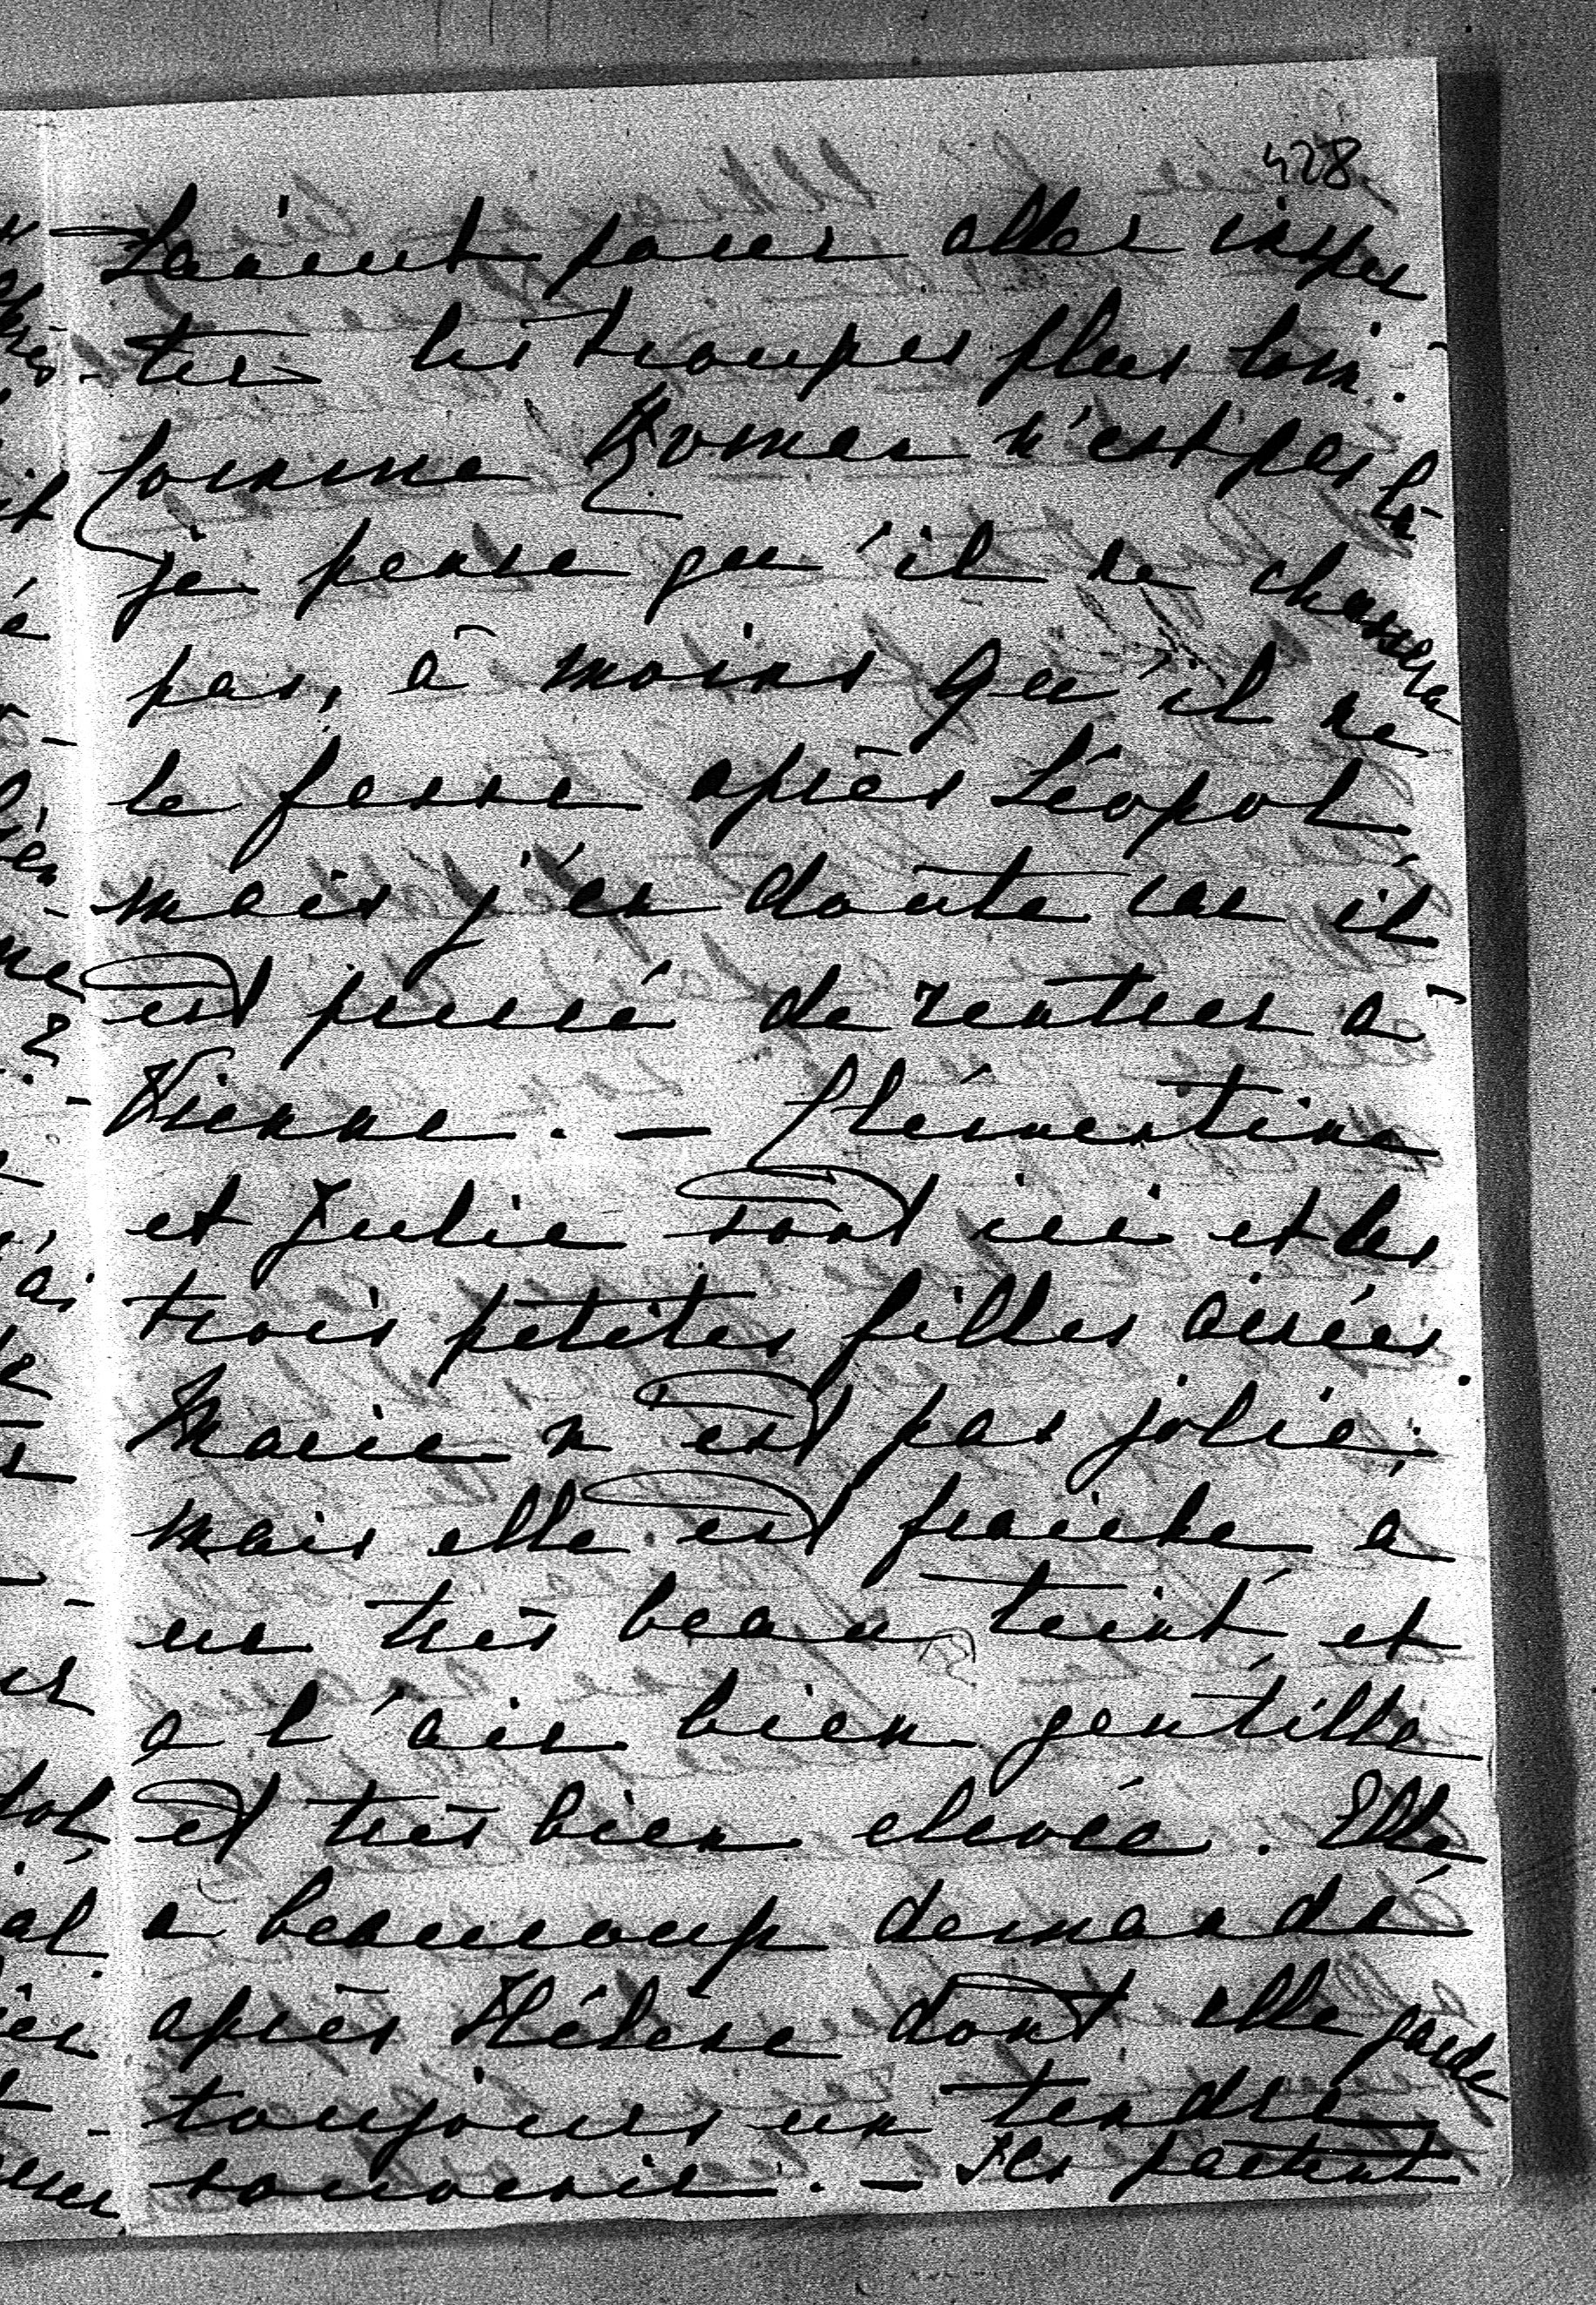 428
pour aller inspec
ter les troupes plus loin.
Comme n'est pas là
je pense qu'il ne chassera
pas, à moins qu'il ne
le fasse après Léopol
mais j'en doute car il
est pressé de rentrer à
Vienne. — Clémentine
et Julie sont ici et les
trois petites filles ainées.
Marie n'est pas jolie;
mais elle est fraiche a
un très beau teint, et
a l'air bien gentille
et très bien elevée. Elle
a beaucoup demandé
après Hélène dont elle garde
toujours un tendre
souvenir. — Ils partent